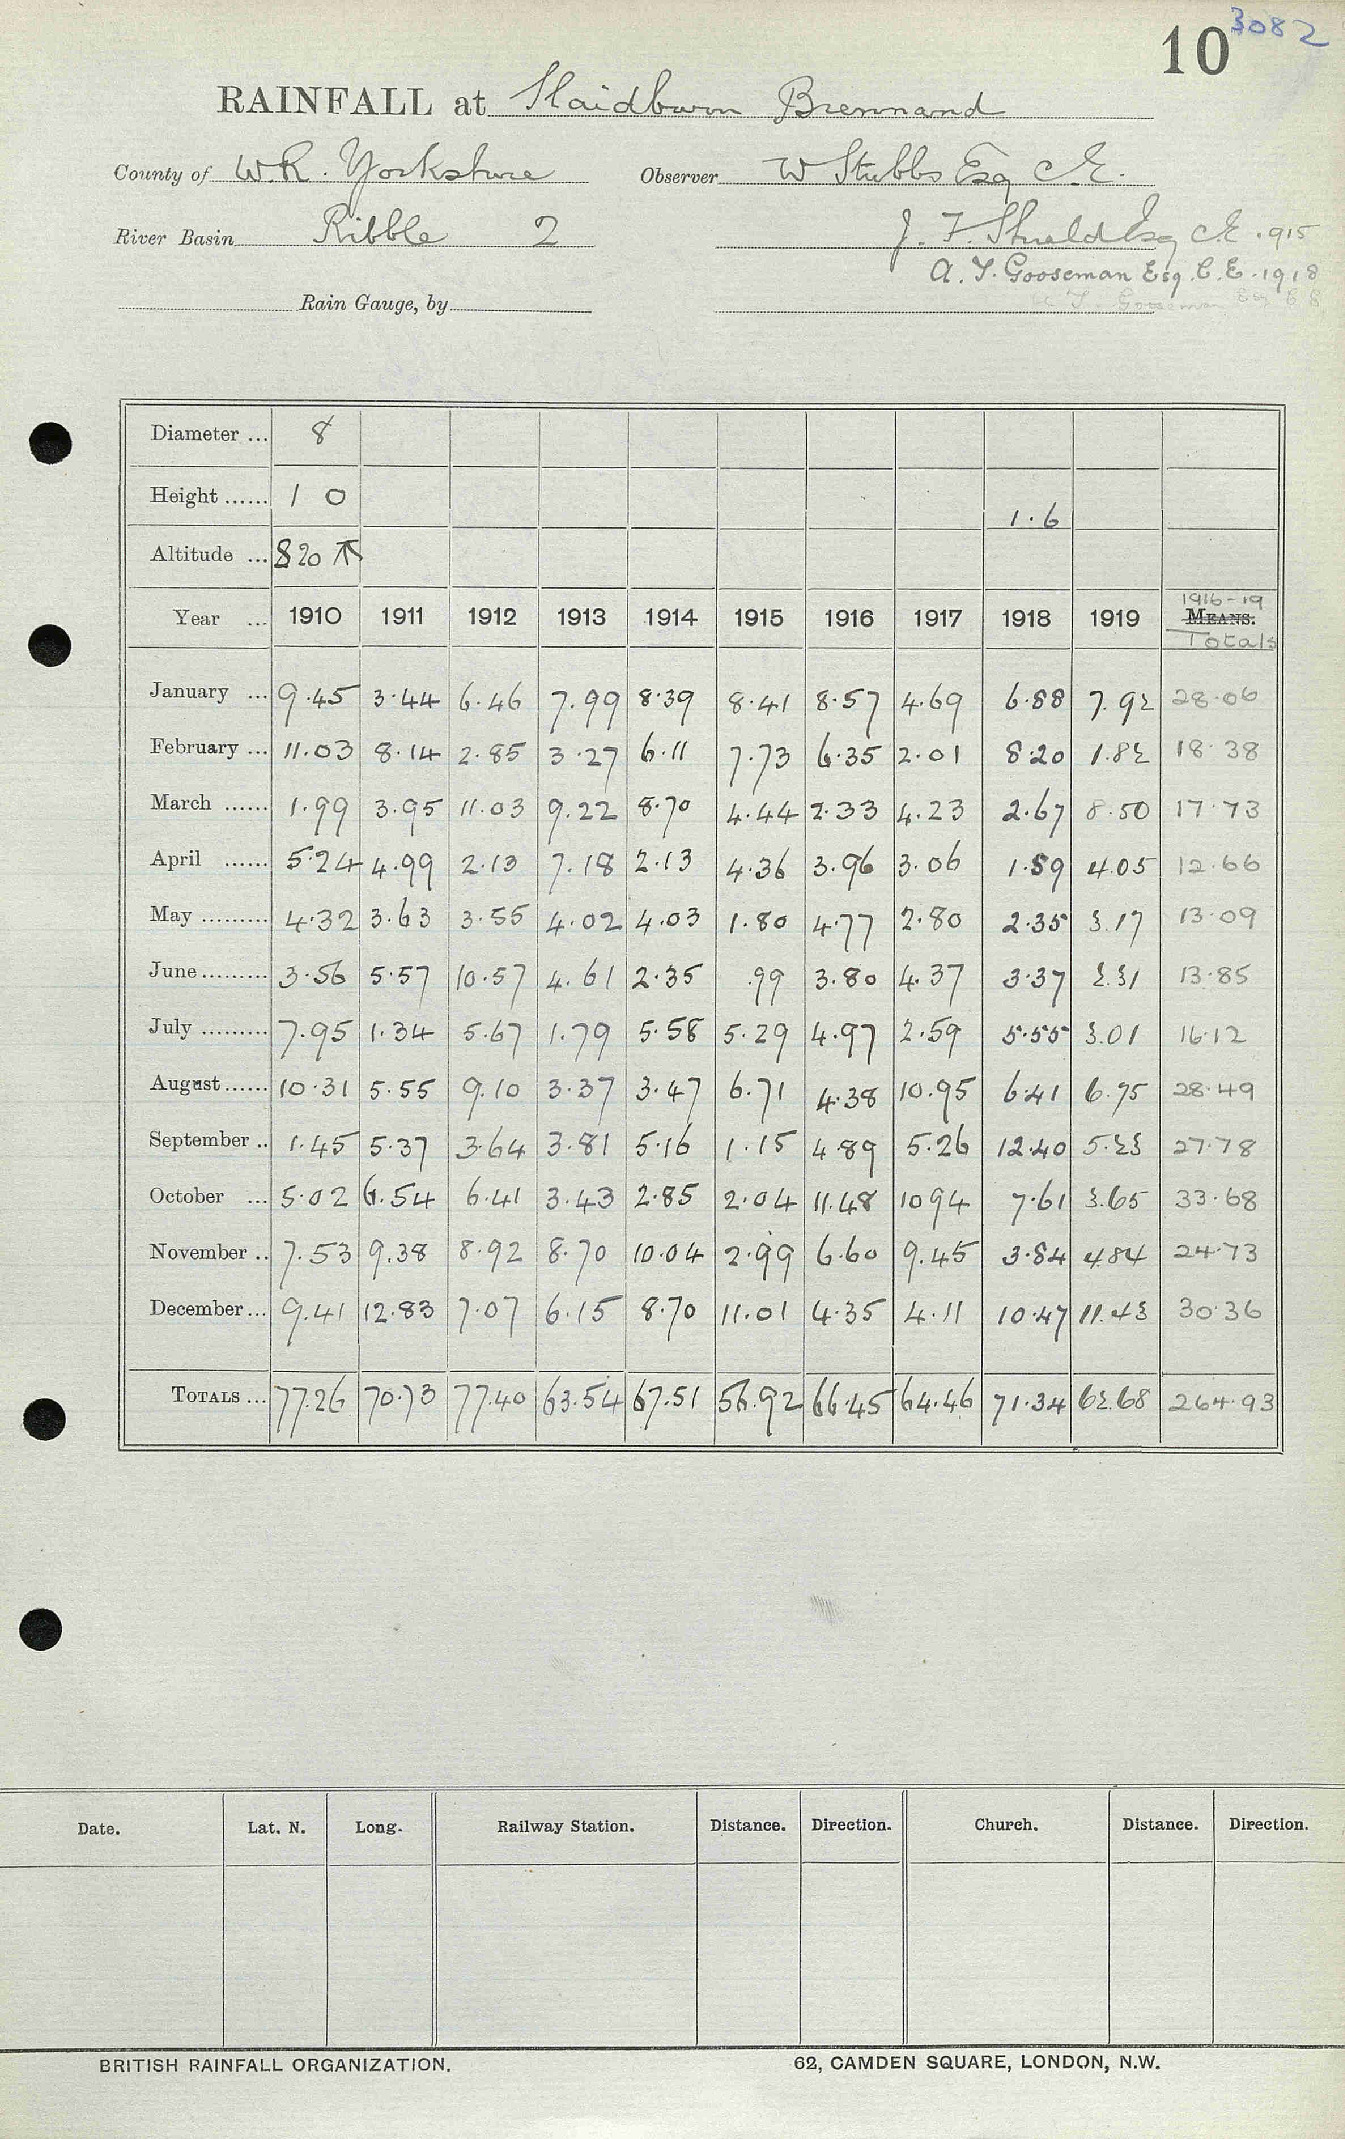 3082
10
RAINFALL at Slaidburn Brennand
County of W.R. Yorkshire Observer W Stubbs Esq C.E.
River Basin Ribble 2 J. F. Shield Esq C.E. 1915
A. T. Gooseman Esq. C.E. 1918
Rain Gauge, by
Diameter ... 8
Height ...... 1 0 1.6
Altitude ... 820 ↑
Year ... 1910 1911 1912 1913 1914 1915 1916 1917 1918 1919 1916-19 MEANS. Totals
January ... 9.45 3.44 6.46 7.99 8.39 8.41 8.57 4.69 6.88 7.92 28.06
February ... 11.03 8.14 2.85 3.27 6.11 7.73 6.35 2.01 8.20 1.82 18.38
March ...... 1.99 3.95 11.03 9.22 8.70 4.44 2.33 4.23 2.67 8.50 17.73
April ...... 5.24 4.99 2.13 7.18 2.13 4.36 3.96 3.06 1.59 4.05 12.66
May ......... 4.32 3.63 3.55 4.02 4.03 1.80 4.77 2.80 2.35 3.17 13.09
June ......... 3.56 5.57 10.57 4.61 2.35 .99 3.80 4.37 3.37 2.31 13.85
July ......... 7.95 1.34 5.67 1.79 5.58 5.29 4.97 2.59 5.55 3.01 16.12
August ...... 10.31 5.55 9.10 3.37 3.47 6.71 4.38 10.95 6.41 6.75 28.49
September .. 1.45 5.37 3.64 3.81 5.16 1.15 4.89 5.26 12.40 5.23 27.78
October ... 5.02 6.54 6.41 3.43 2.85 2.04 11.48 10 94 7.61 3.65 33.68
November .. 7.53 9.38 8.92 8.70 10.04 2.99 6.60 9.45 3.84 4 84 24.73
December ... 9.41 12.83 7.07 6.15 8.70 11.01 4.35 4.11 10.47 11.43 30.36
TOTALS ... 77.26 70.73 77.40 63.54 67.51 56.92 66.45 64.46 71.34 62.68 264.93
Date. Lat. N. Long. Railway Station. Distance. Direction. Church. Distance. Direction.
BRITISH RAINFALL ORGANIZATION. 62, CAMDEN SQUARE, LONDON, N.W.